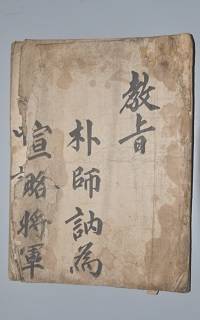 教旨
朴師訥為
宣略將軍